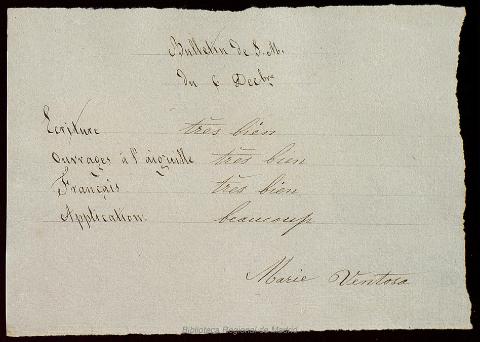 Bulletin de S. M.
du 6 Decbre
Ecriture très bien
Ouvrages à l'aiguille très bien
Français très bien
Application beaucoup
Marie Ventosa
Biblioteca Regional de Madrid